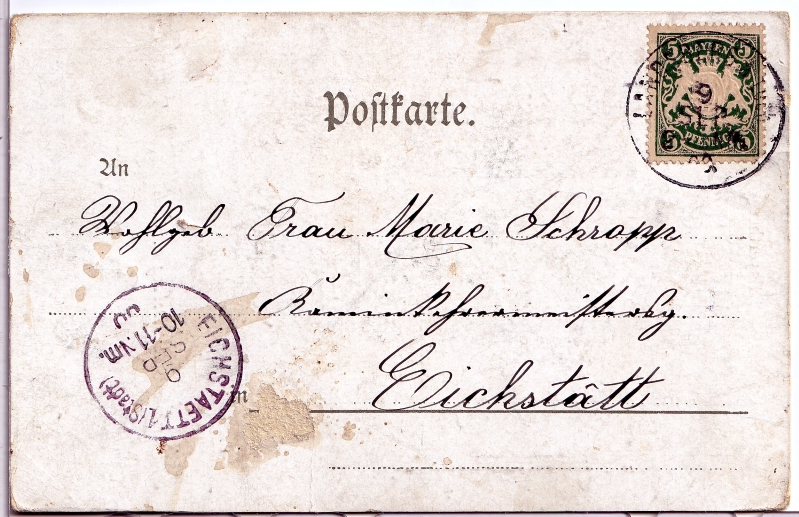 Postkarte.
5 BAYERN 5
9
5 PFENNIG 5
An
Wohlgeb Frau Marie Schropp
Kaminkehrermeistersg.
in Eichstätt
EICHSTAETT 1/(Stadt)
9
SEP
10-11 Nm.
00